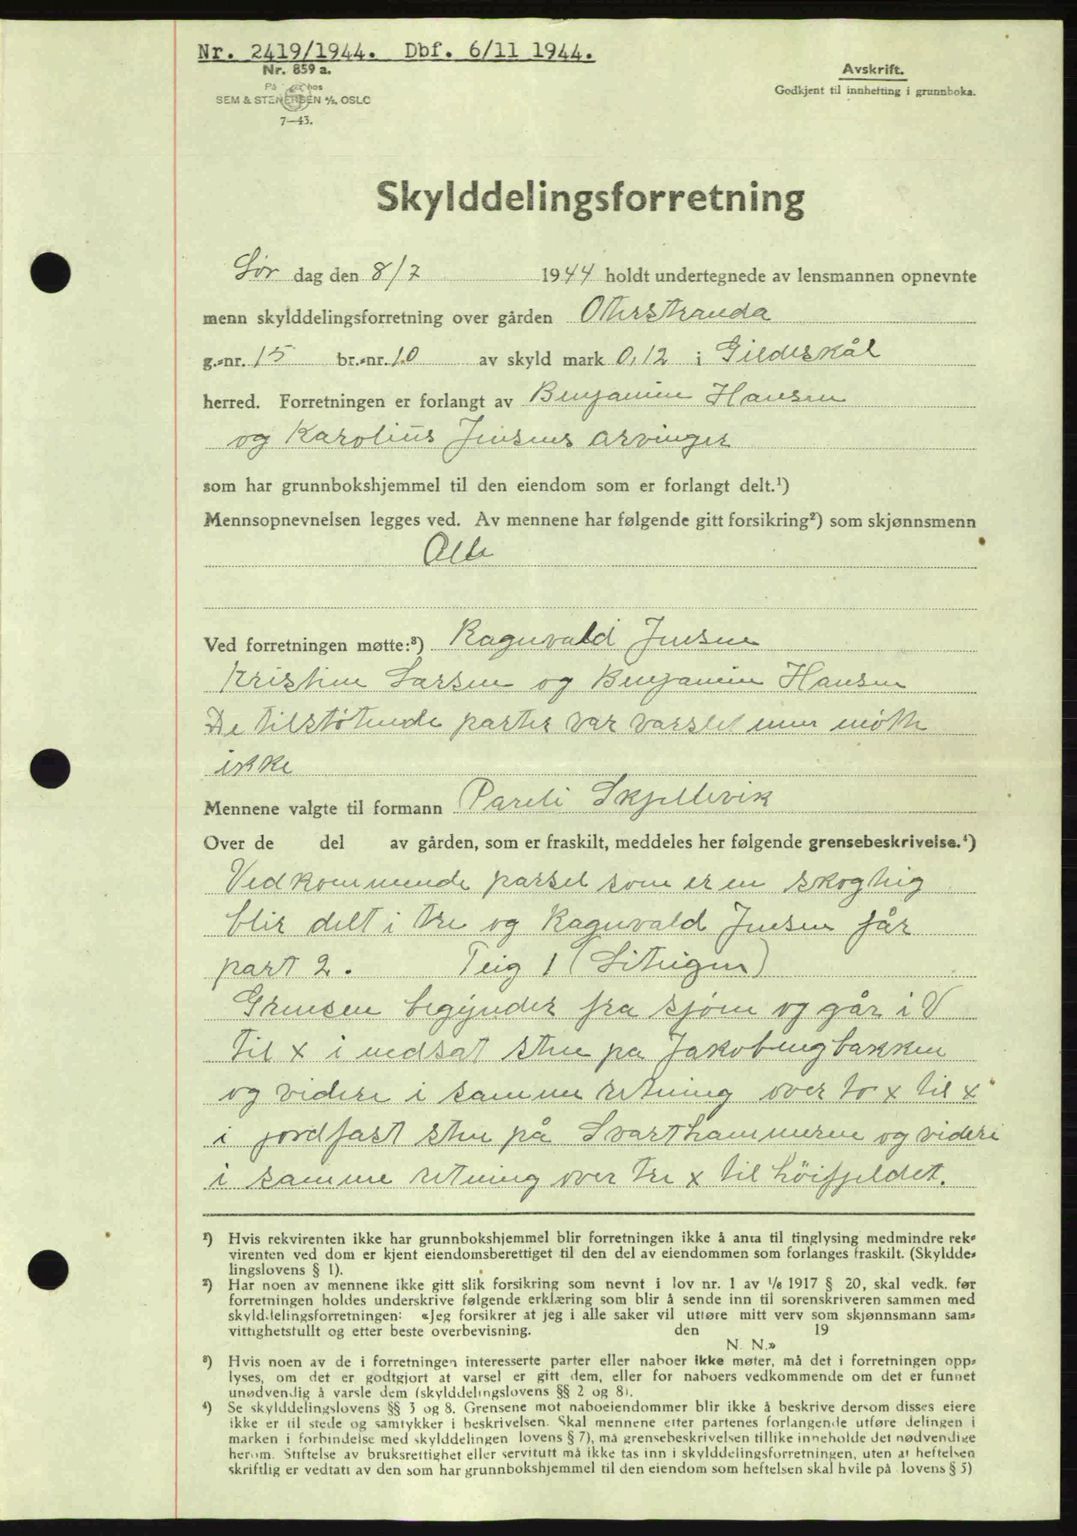 Nr. 2419/1944. Dbf. 6/11 1944.
Nr. 859 a.
På hos
SEM & STENERSEN A/S, OSLO
7—43.
Avskrift.
Godkjent til innhefting i grunnboka.
Skylddelingsforretning
Lør dag den 8/7 1944 holdt undertegnede av lensmannen opnevnte
menn skylddelingsforretning over gården Oterstranda
g.-nr. 15 br.-nr. 10 av skyld mark 0,12 i Gildeskål
herred. Forretningen er forlangt av Benjamin Hansen
og Karolius Jensens arvinger
som har grunnbokshjemmel til den eiendom som er forlangt delt.¹)
Mennsopnevnelsen legges ved. Av mennene har følgende gitt forsikring²) som skjønnsmenn
Alle
Ved forretningen møtte:³) Ragnvald Jensen
Kristine Larsen og Benjamin Hansen
De tilstøtende parter var varslet men møtte
ikke
Mennene valgte til formann Pareli Skjellevik
Over de del av gården, som er fraskilt, meddeles her følgende grensebeskrivelse.⁴)
Vedkommende parsel som er en skogteig
blir delt i tre og Ragnvald Jensen får
part 2. Teig 1 (Liteigen)
Grensen begynder fra sjøen og går i V
til x i nedsat sten på Jakobengbakken
og videre i samme retning over to x til x
i jordfast sten på Svarthammeren og videre
i samme retning over tre x til höifjeldet.
¹) Hvis rekvirenten ikke har grunnbokshjemmel blir forretningen ikke å anta til tinglysing medmindre rek-
virenten ved dom er kjent eiendomsberettiget til den del av eiendommen som forlanges fraskilt. (Skyldde-
lingslovens § 1).
²) Har noen av mennene ikke gitt slik forsikring som nevnt i lov nr. 1 av 1/6 1917 § 20, skal vedk. før
forretningen holdes underskrive følgende erklæring som blir å sende inn til sorenskriveren sammen med
skylddelingsforretningen: «Jeg forsikrer at jeg i alle saker vil utføre mitt verv som skjønnsmann sam-
vittighetsfullt og etter beste overbevisning. den 19
N. N.»
³) Hvis noen av de i forretningen interesserte parter eller naboer ikke møter, må det i forretningen opp-
lyses, om det er godtgjort at varsel er gitt dem, eller for naboers vedkommende om det er funnet
unødvendig å varsle dem (skylddelingslovens §§ 2 og 8).
⁴) Se skylddelingslovens §§ 3 og 8. Grensene mot naboeiendommer blir ikke å beskrive dersom disses eiere
ikke er til stede og samtykker i beskrivelsen. Skal mennene etter partenes forlangende utføre delingen i
marken i forbindelse med skylddelingen lovens § 7), må grensebeskrivelsen tillike inneholde det nødvendige
herom. Stiftelse av bruksrettighet eller servitutt må ikke tas inn i skylddelingsforretningen, uten at heftelsen
skriftlig er vedtatt av den som har grunnbokshjemmel til den eiendom som heftelsen skal hvile på lovens § 5)